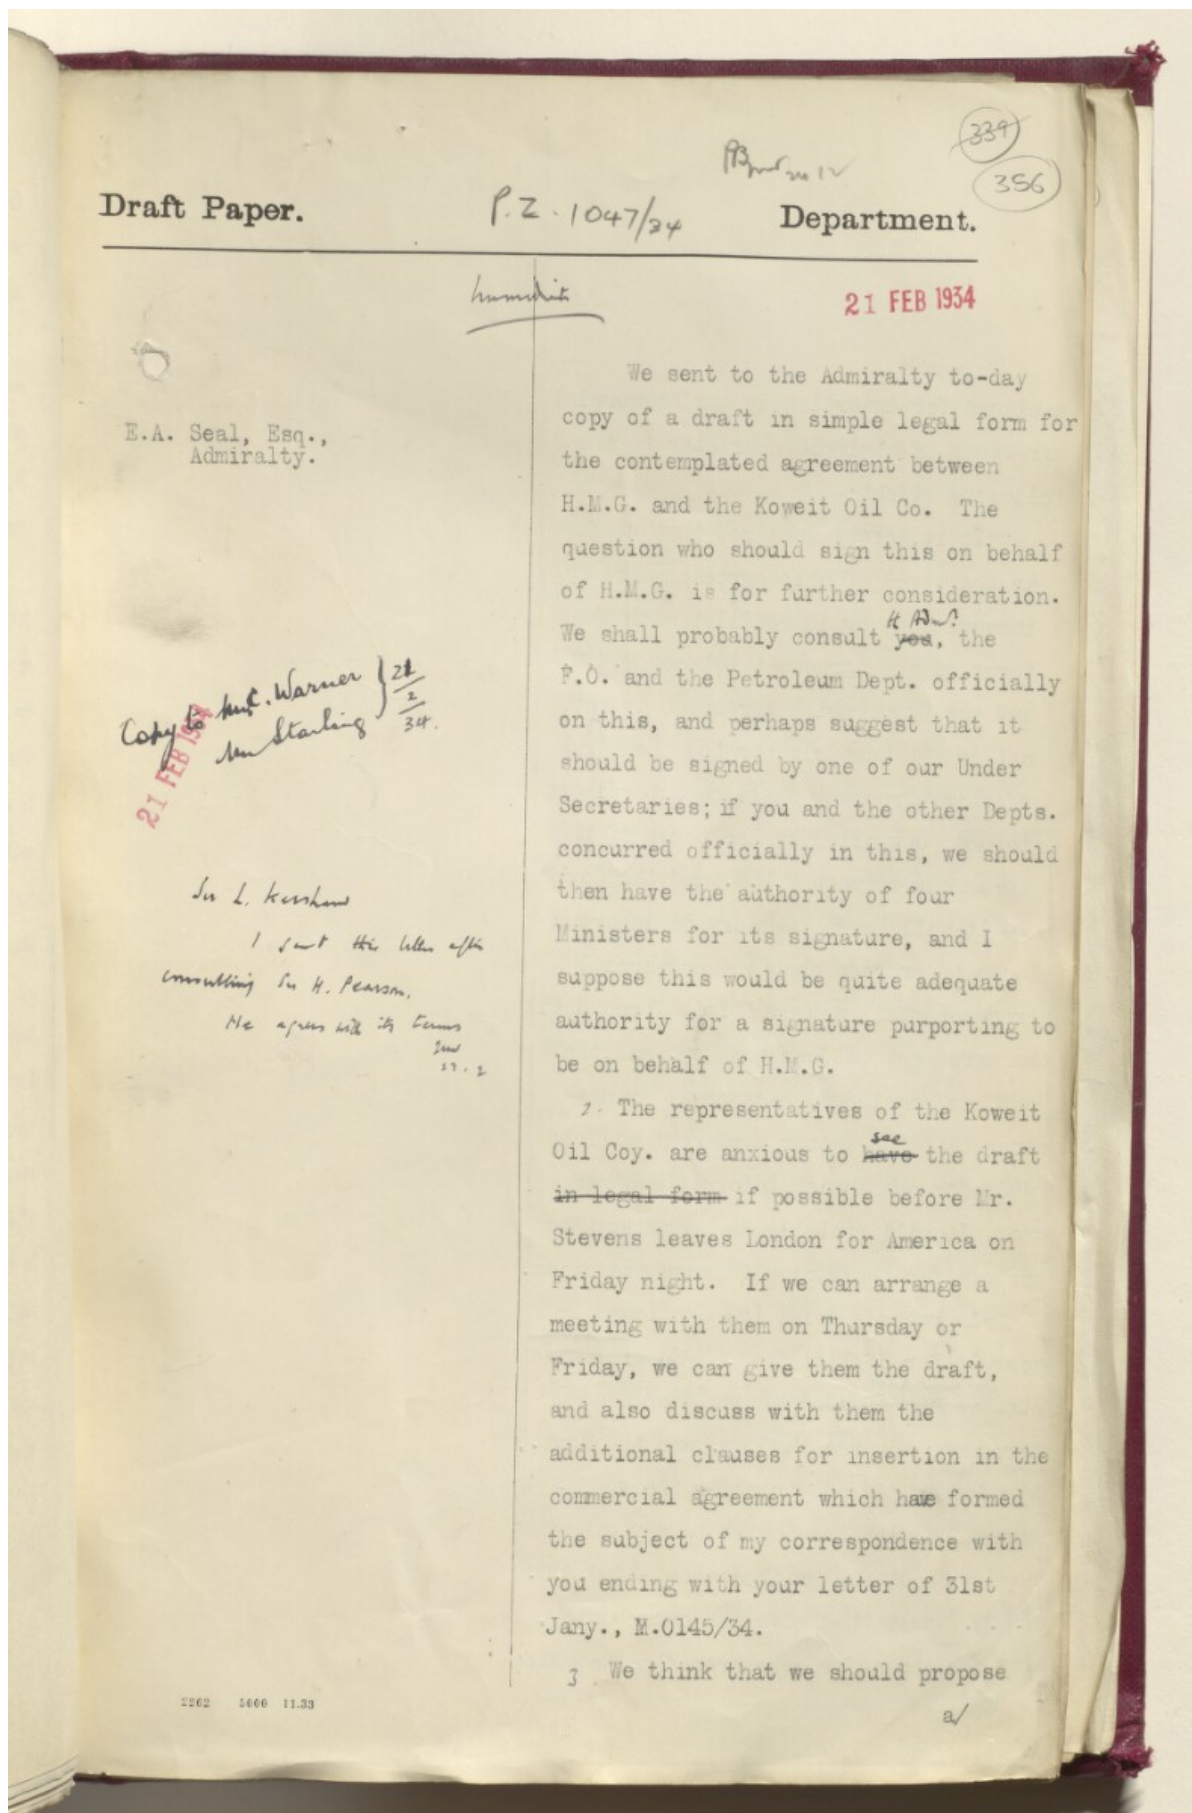 339
356
Draft Paper.
P.Z. 1047/34
Department.
Immediate
21 FEB 1934
E.A. Seal, Esq.,
Admiralty.
Copy to Mr C. Warner } 21/2/34.
Mr Starling
21 FEB 1934
Sir L. Kershaw
I sent this letter after
consulting Sir H. Pearson.
He agrees with its terms
We sent to the Admiralty to-day
copy of a draft in simple legal form for
the contemplated agreement between
H.M.G. and the Koweit Oil Co. The
question who should sign this on behalf
of H.M.G. is for further consideration.
We shall probably consult you, the
F.O. and the Petroleum Dept. officially
on this, and perhaps suggest that it
should be signed by one of our Under
Secretaries; if you and the other Depts.
concurred officially in this, we should
then have the authority of four
Ministers for its signature, and I
suppose this would be quite adequate
authority for a signature purporting to
be on behalf of H.M.G.
2. The representatives of the Koweit
see
Oil Coy. are anxious to have the draft
in legal form if possible before Mr.
Stevens leaves London for America on
Friday night. If we can arrange a
meeting with them on Thursday or
Friday, we can give them the draft,
and also discuss with them the
additional clauses for insertion in the
commercial agreement which have formed
the subject of my correspondence with
you ending with your letter of 31st
Jany., M.0145/34.
3 We think that we should propose
a/
2262 5000 11.33